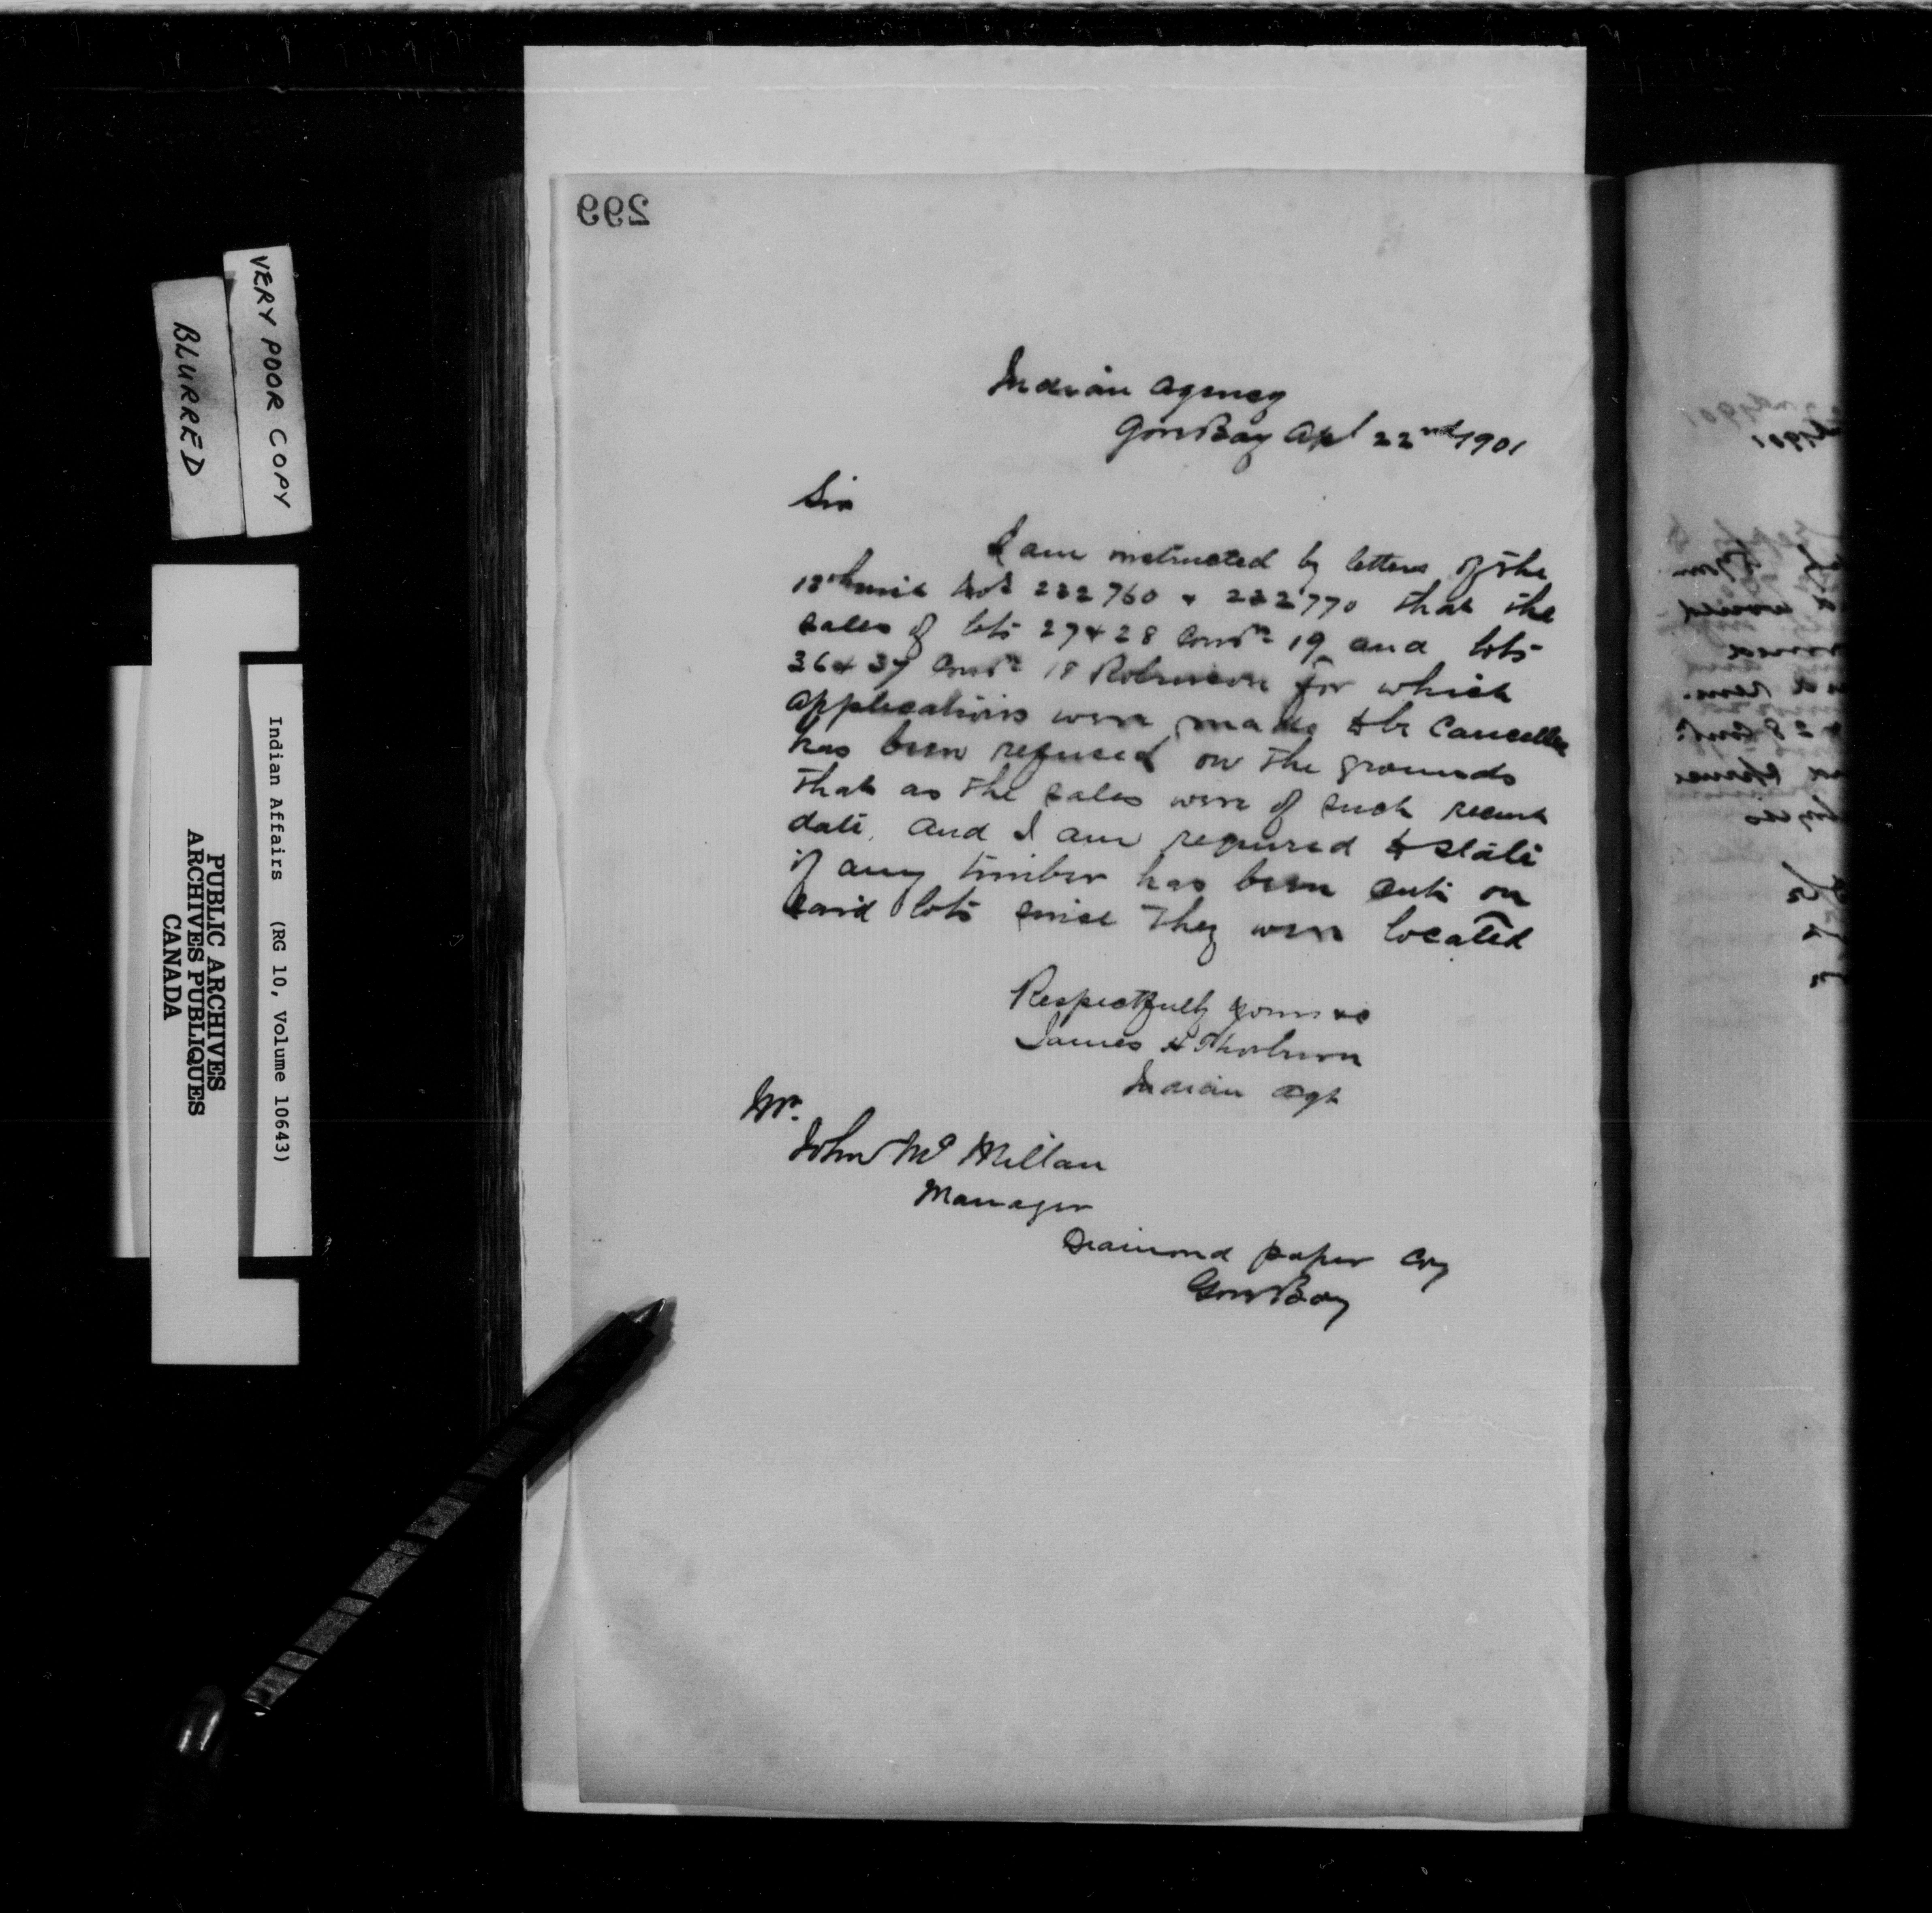 299
Indian Agency
Gore Bay Apl 22nd 1901
Sir
I am instructed by letters of the
18th inst Nos 232760 & 232770 that the
sales of lots 27 & 28 Conc 19 and lots
36 & 37 Conc 18 Robinson for which
applications were made to be Cancelled
has been refused on the grounds
that as the sales were of such recent
date. and I am required to state
if any timber has been cut on
said lots since they were located
Respectfully yours &c
James H Thorburn
Indian Agt
Mr.
John Mc Millan
Manager
Diamond paper Coy
Gore Bay
VERY POOR COPY
BLURRED
Indian Affairs (RG 10, Volume 10643)
PUBLIC ARCHIVES
ARCHIVES PUBLIQUES
CANADA